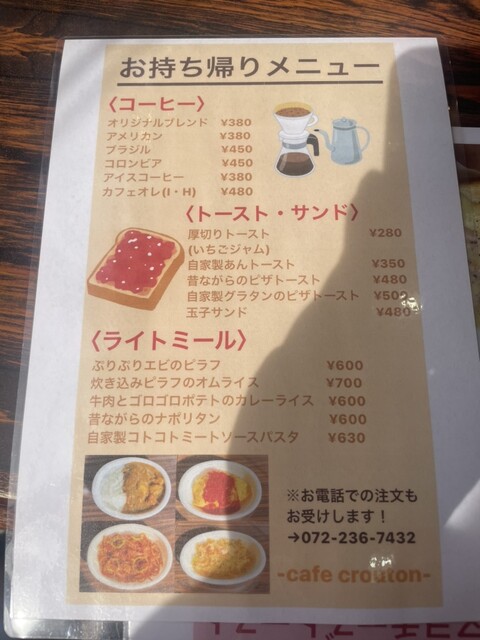 お持ち帰りメニュー
〈コーヒー〉
オリジナルブレンド ¥380
アメリカン ¥380
ブラジル ¥450
コロンビア ¥450
アイスコーヒー ¥380
カフェオレ(I・H) ¥480
〈トースト・サンド〉
厚切りトースト ¥280
(いちごジャム)
自家製あんトースト ¥350
昔ながらのピザトースト ¥480
自家製グラタンのピザトースト ¥500
玉子サンド ¥480
〈ライトミール〉
ぷりぷりエビのピラフ ¥600
炊き込みピラフのオムライス ¥700
牛肉とゴロゴロポテトのカレーライス ¥600
昔ながらのナポリタン ¥600
自家製コトコトミートソースパスタ ¥630
※お電話での注文も
お受けします！
→072-236-7432
-cafe crouton-